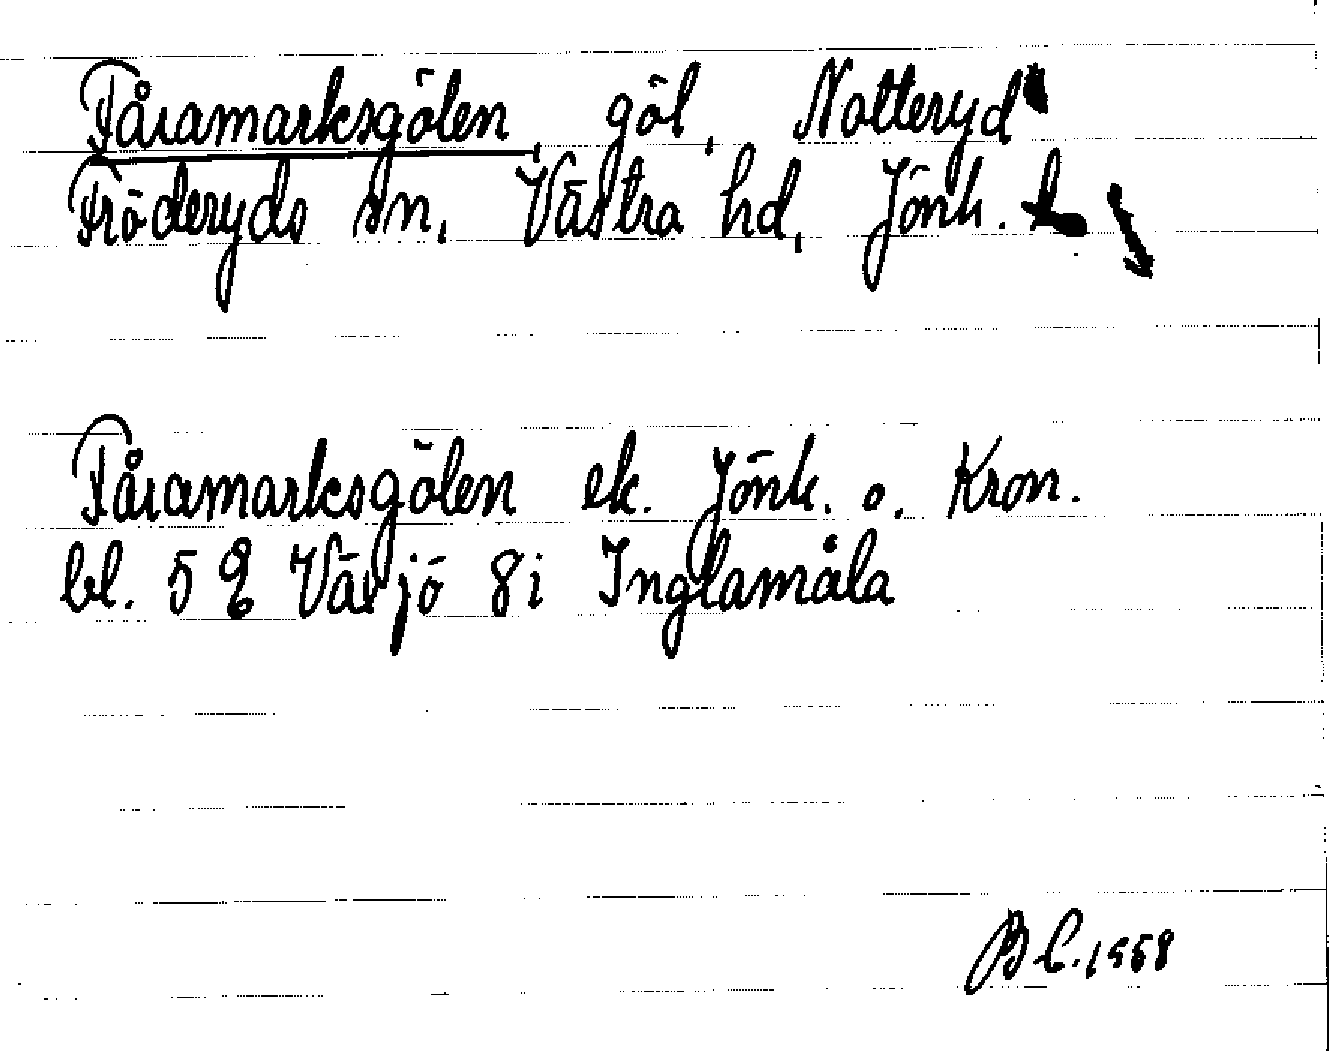 Fåramarksgölen, göl, Notteryd
Fröderyds sn, Västra hd, Jönk. L
Fåramarksgölen ek. Jönk. o. Kron.
bl. 5 Q Växjö 8 i Inglamåla
B C. 1958